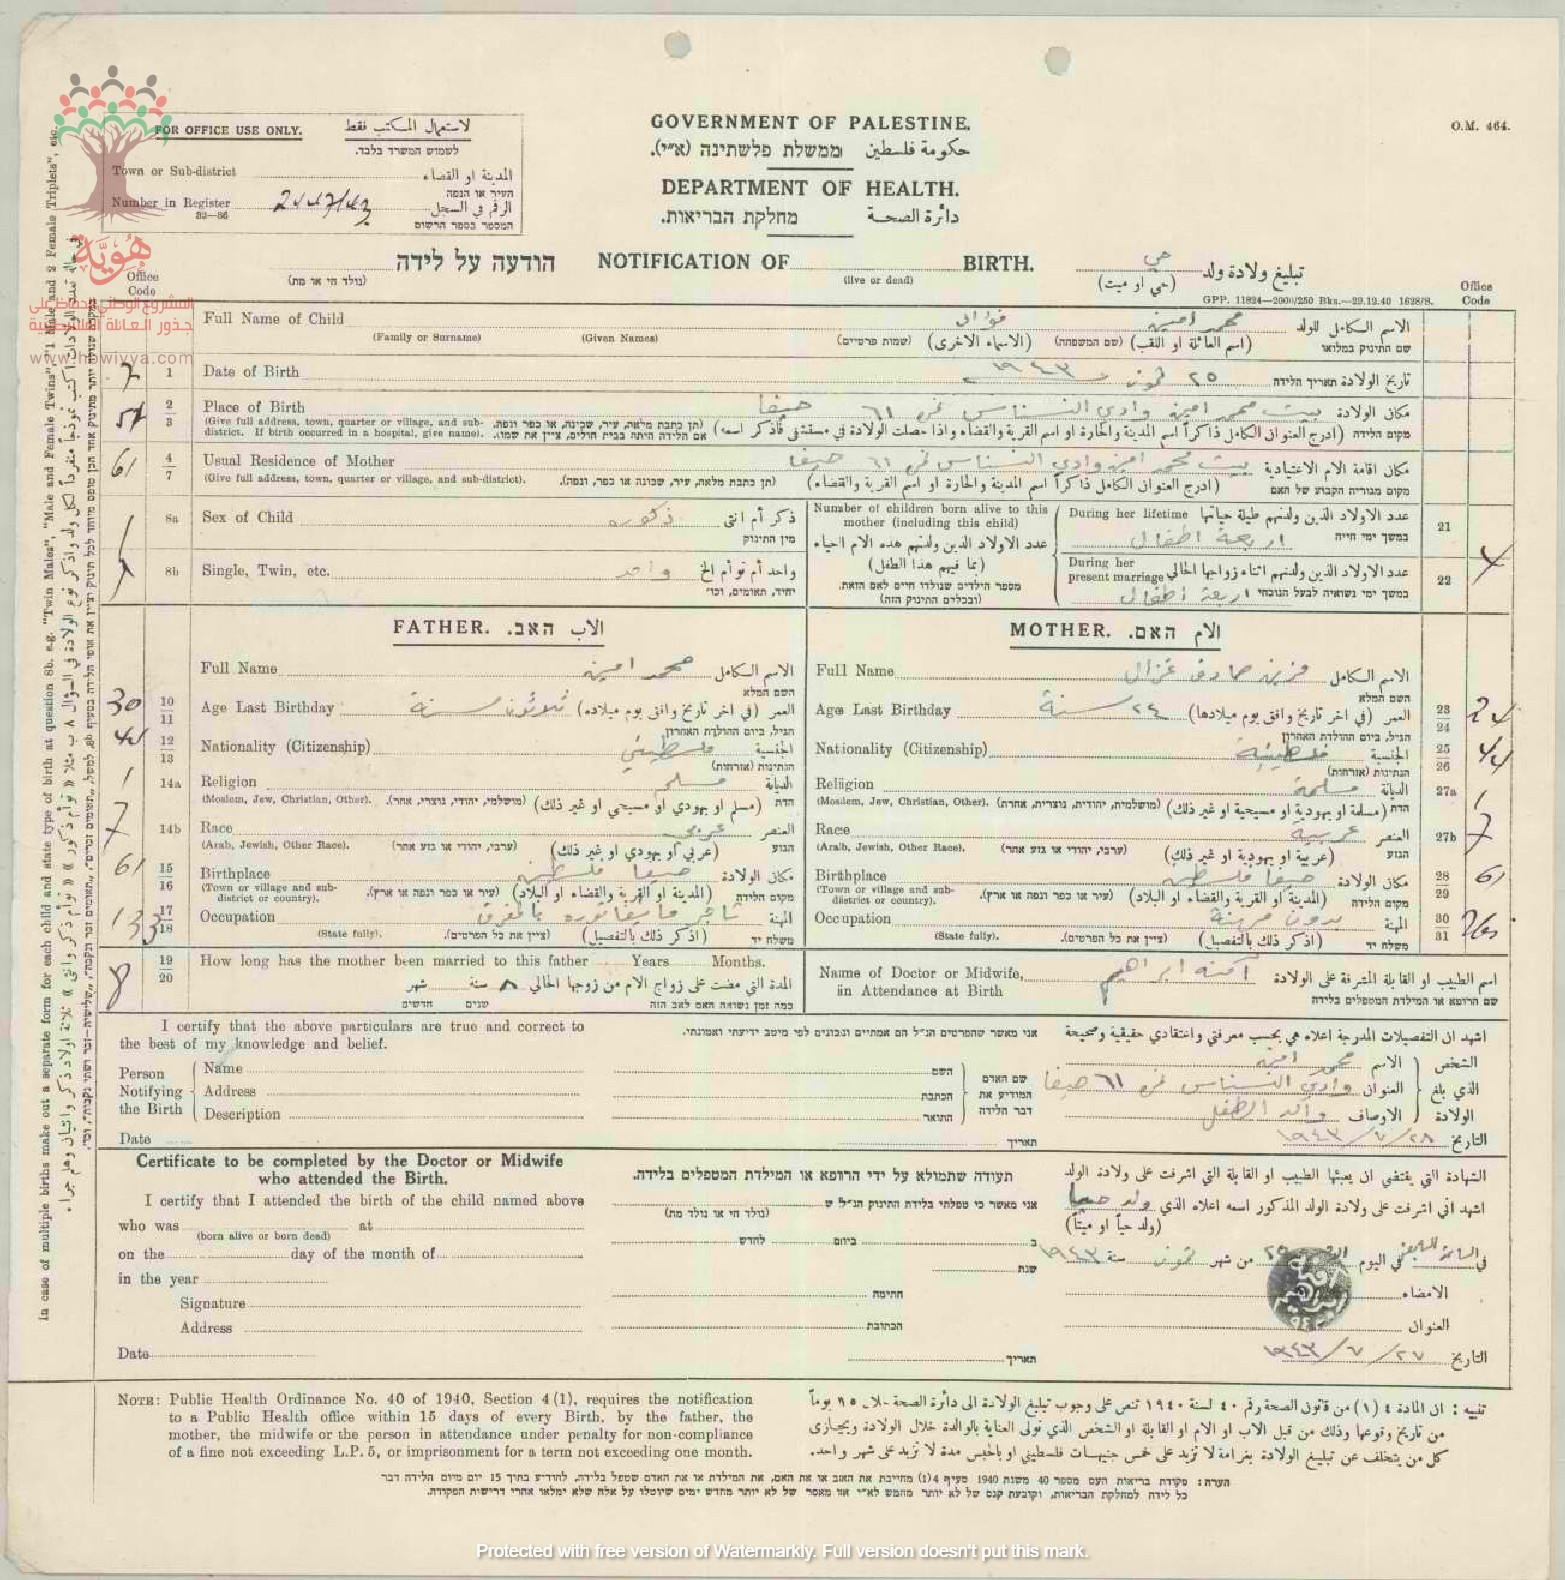 O.M. 464.
FOR OFFICE USE ONLY. لاستعمال المكتب فقط
לשמוש המשרד בלבד.
Town or Sub-district المدينة او القضاء
העיר או הנפה
Number in Register الرقم في السجل
32—36 המספר בספר הרשום
GOVERNMENT OF PALESTINE.
ממשלת פלשתינה (א״י). حكومة فلسطين
DEPARTMENT OF HEALTH.
מחלקת הבריאות. دائرة الصحة
هُوِيَّة
المشروع الوطني للحفاظ على
جذور العائلة الفلسطينية
www.howiyya.com
הודעה על לידה NOTIFICATION OF BIRTH. تبليغ ولادة ولد حي
(נולד חי או מת) (live or dead) (حي او ميت)
GPP. 11824—2000/250 Bks.—29.12.40 1628/8.
Office Code Office Code
Full Name of Child محمد امين الاسم الكامل للولد
(Family or Surname) (Given Names) (שמות פרטיים) (الاسماء الاخرى) (שם המשפחה) (اسم العائلة او اللقب) שם התינוק במלואו
7 1 Date of Birth ٢٥ تموز ١٩٤٣ تاريخ الولادة תאריך הלידה
2 3 Place of Birth بيت محمد امين وادي النسناس نمرة ٦١ حيفا مكان الولادة
(Give full address, town, quarter or village, and sub-district. If birth occurred in a hospital, give name). (תן כתבת מלאה, עיר, שכונה, או כפר ונפה. אם הלידה היתה בבית חולים, ציין את שמו). (ادرج العنوان الكامل ذاكراً اسم المدينة والحارة او اسم القرية والقضاء واذا حصلت الولادة في مستشفى فاذكر اسمه) מקום הלידה
61 4 7 Usual Residence of Mother بيت محمد امين وادي النسناس نمرة ٦١ حيفا مكان اقامة الام الاعتيادية
(Give full address, town, quarter or village, and sub-district). (תן כתבת מלאה, עיר, שכונה או כפר, ונפה). (ادرج العنوان الكامل ذاكراً اسم المدينة والحارة او اسم القرية والقضاء) מקום מגורית הקבוע של האם
1 8a Sex of Child ذكوره ذكر أم انثى
מין התינוק
8b Single, Twin, etc. واحد واحد أم توأم الخ
יחיד, תאומים, וכו׳
Number of children born alive to this mother (including this child)
عدد الاولاد الذين ولدتهم هذه الام احياء
(بما فيهم هذا الطفل)
מספר הילדים שנולדו חיים לאם הזאת.
(ובכללם התינוק הזה)
During her lifetime عدد الاولاد الذين ولدتهم طيلة حياتها 21
اربعة اطفال במשך ימי חייה
During her present marriage عدد الاولاد الذين ولدتهم اثناء زواجها الحالي 22 4
اربعة اطفال במשך ימי נשואיה לבעל הנוכחי
FATHER. الاب האב.
Full Name محمد امين الاسم الكامل
השם המלא
30 10 11 Age Last Birthday ثلاثون سنة العمر (في اخر تاريخ وافق يوم ميلاده)
הגיל, ביום ההולדת האחרון
44 12 13 Nationality (Citizenship) فلسطيني الجنسية
הנתינות (אזרחות)
1 14a Religion مسلم الديانة
(Moslem, Jew, Christian, Other). (מושלמי, יהודי, נוצרי, אחר). (مسلم او يهودي او مسيحي او غير ذلك) הדת
7 14b Race عربي العنصر
(Arab, Jewish, Other Race). (ערבי, יהודי או גזע אחר) (عربي او يهودي او غير ذلك) הגזע
61 15 16 Birthplace حيفا فلسطين مكان الولادة
(Town or village and sub-district or country). (עיר או כפר ונפה או ארץ). (المدينة او القرية والقضاء او البلاد) מקום הלידה
133 17 18 Occupation تاجر المهنة
(State fully). (ציין את כל הפרטים). (اذكر ذلك بالتفصيل) משלח יד
8 19 20 How long has the mother been married to this father Years Months.
المدة التي مضت على زواج الام من زوجها الحالي ٨ سنة شهر
כמה זמן נשואה האם לאב הזה שנים חדשים
MOTHER. الام האם.
Full Name صادق غزال الاسم الكامل
השם המלא
Age Last Birthday ٢٤ سنة العمر (في اخر تاريخ وافق يوم ميلادها) 23 24 24
הגיל, ביום ההולדת האחרון
Nationality (Citizenship) فلسطينية الجنسية 25 26 44
הנתינות (אזרחות)
Religion مسلمة الديانة 27a 1
(Moslem, Jew, Christian, Other). (מושלמית, יהודית, נוצרית, אחרת) (مسلمة او يهودية او مسيحية او غير ذلك) הדת
Race عربية العنصر 27b 7
(Arab, Jewish, Other Race). (ערבי, יהודי או גזע אחר) (عربية او يهودية او غير ذلك) הגזע
Birthplace حيفا فلسطين مكان الولادة 28 29 61
(Town or village and sub-district or country). (עיר או כפר ונפה או ארץ). (المدينة او القرية والقضاء او البلاد) מקום הלידה
Occupation بدون مهنة المهنة 30 31
(State fully). (ציין את כל הפרטים). (اذكر ذلك بالتفصيل) משלח יד
Name of Doctor or Midwife, in Attendance at Birth آمنة ابراهيم اسم الطبيب او القابلة المشرفة على الولادة
שם הרופא או המילדת המטפלים בלידה
I certify that the above particulars are true and correct to the best of my knowledge and belief.
אני מאשר שהפרטים הנ״ל הם אמתיים ונכונים לפי מיטב ידיעתי ואמונתי.
اشهد ان التفصيلات المدرجة اعلاه هي بحسب معرفتي واعتقادي حقيقية وصحيحة
Person Notifying the Birth
Name השם محمد امين الاسم
Address הכתבת وادي النسناس نمرة ٦١ حيفا العنوان
Description התואר والد الطفل الاوصاف
שם האדם המודיע את דבר הלידה
الشخص الذي بلغ الولادة
Date תאריך ٢٨/٧/١٩٤٣ التاريخ
Certificate to be completed by the Doctor or Midwife who attended the Birth.
תעודה שתמולא על ידי הרופא או המילדת המטפלים בלידה.
الشهادة التي يقتضي ان يعبئها الطبيب او القابلة التي اشرفت على ولادة الولد
I certify that I attended the birth of the child named above
who was at
(born alive or born dead)
on the day of the month of
in the year
Signature
Address
Date
אני מאשר כי טפלתי בלידת התינוק הנ״ל ש
(נולד חי או נולד מת)
ב ביום לחדש
שנת
חתימה
הכתובת
תאריך
اشهد اني اشرفت على ولادة الولد المذكور اسمه اعلاه الذي ولد حيا
(ولد حياً او ميتاً)
في في اليوم ٢٥ من شهر تموز سنة ١٩٤٣
الامضاء
العنوان
التاريخ ٢٧/٧/١٩٤٣
NOTE: Public Health Ordinance No. 40 of 1940, Section 4 (1), requires the notification
to a Public Health office within 15 days of every Birth, by the father, the
mother, the midwife or the person in attendance under penalty for non-compliance
of a fine not exceeding L.P. 5, or imprisonment for a term not exceeding one month.
تنبيه : ان المادة ٤ (١) من قانون الصحة رقم ٤٠ لسنة ١٩٤٠ تنص على وجوب تبليغ الولادة الى دائرة الصحة خلال ١٥ يوماً
من تاريخ وقوعها وذلك من قبل الاب او الام او القابلة او الشخص الذي تولى العناية بالوالدة خلال الولادة ويجازى
كل من يتخلف عن تبليغ الولادة بغرامة لا تزيد على خمس جنيهات فلسطيني او بالحبس مدة لا تزيد على شهر واحد.
הערה: פקודת בריאות העם מספר 40 משנת 1940 סעיף 4(1) מחייבת את האב או את האם, את המילדת או את האדם שטפל בלידה, להודיע בתוך 15 יום מיום הלידה דבר
כל לידה למחלקת הבריאות, וקובעת קנס של לא יותר מחמש לא״י או מאסר של לא יותר מחדש ימים שיוטלו על אלה שלא ימלאו אחרי דרישות הפקודה.
In case of multiple births make out a separate form for each child and state type of birth at question 8b. e.g. "Twin Males", "Male and Female Twins", "1 Male and 2 Female Triplets", etc.
Protected with free version of Watermarkly. Full version doesn't put this mark.